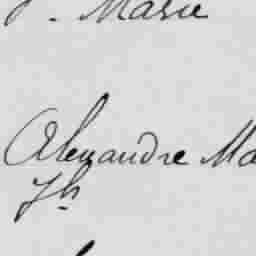 J. Marie
Alexandre Ma
Jh